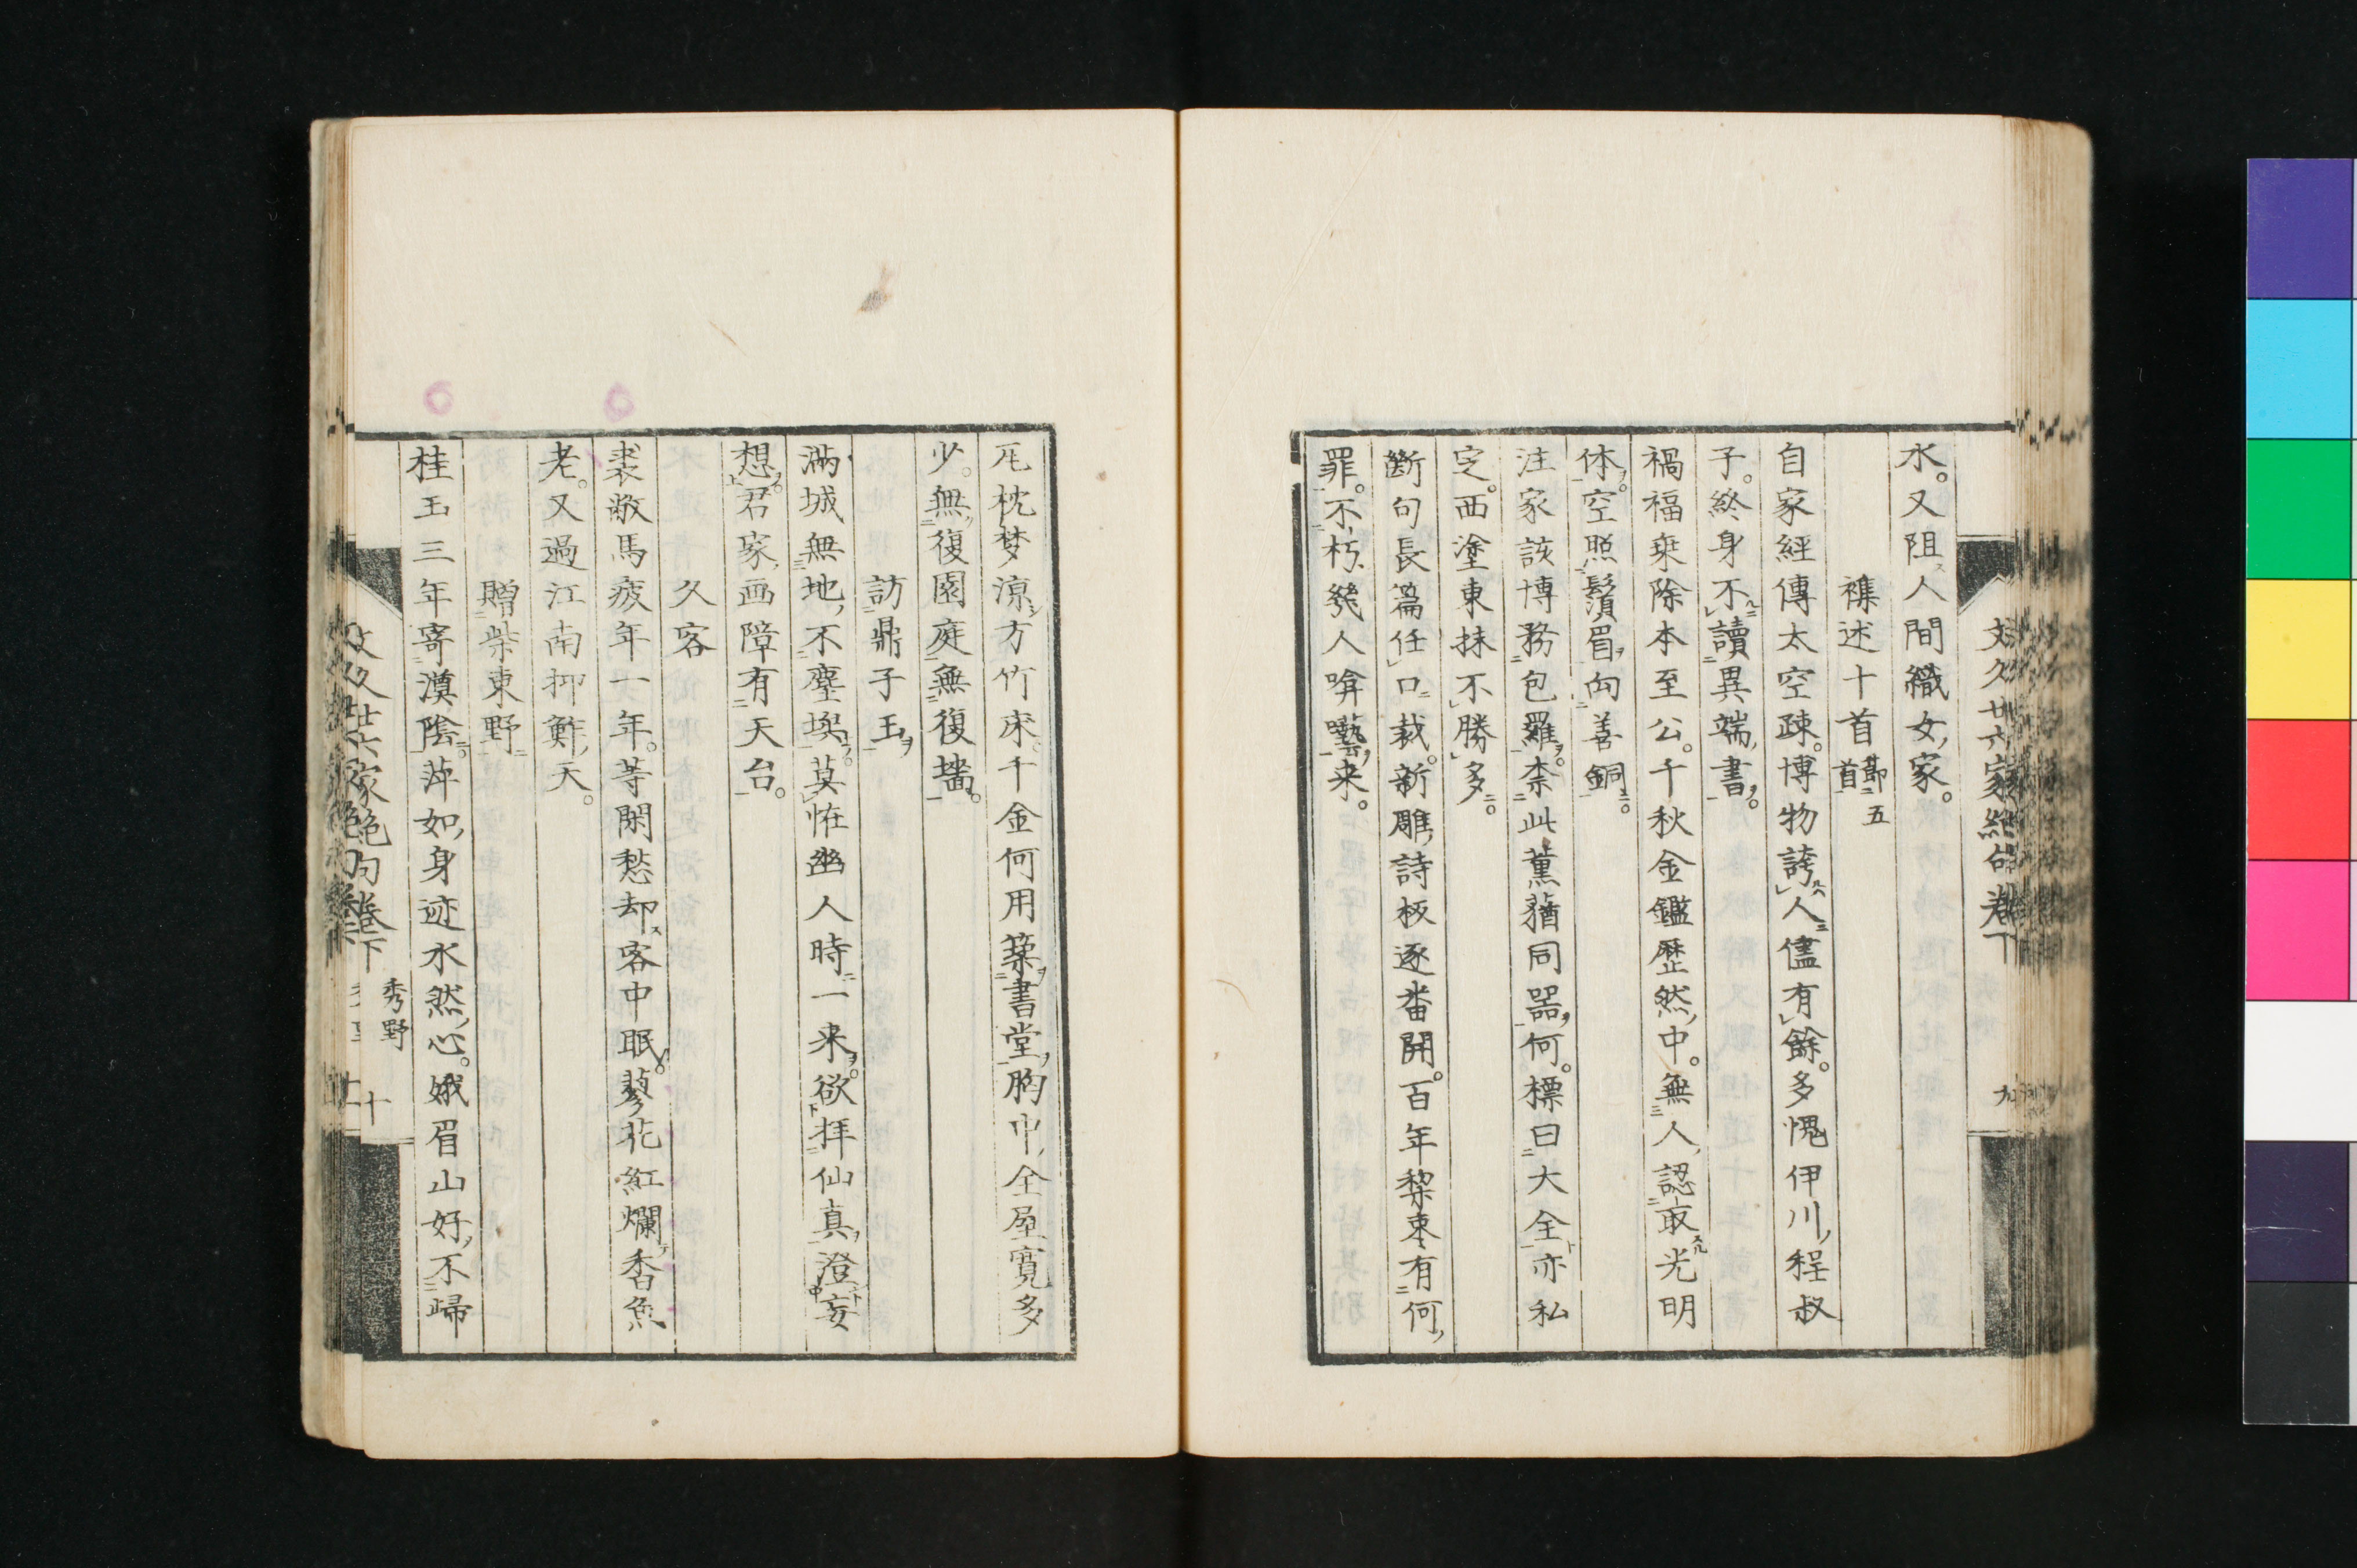 水。又阻人間織女家。
襍述十首節五首
自家經傳太空疎。博物誇人儘有餘。多愧伊川程叔
子。終身不讀異端書。
禍福乗除本至公。千秋金鑑歴然中。無人認取光明
体。空照鬚眉向善銅。
注家該博務包羅。柰此薫蕕同器何。標曰大全亦私
定。西塗東抹不勝多。
斷句長篇任口裁。新雕詩板逐番開。百年棃枣有何
罪。不朽幾人喰囈来。
文久廿六家絶句巻下
九
瓦枕梦涼方竹床。千金何用築書堂。胸中全屋寛多
少。無復園庭無復墻。
訪鼎子玉
滿城無地不塵埃。莫恠幽人時一来。欲拝仙真澄妄
想。君家画障有天台。
久客
裘敝馬疲年一年。等閑愁却客中眠。蓼花紅爛香魚
老。又過江南抑鮓天。
贈柴東野
桂玉三年寄漠陰。萍如身迹水然心。娥眉山好不歸
文久廿六家絶句巻下
秀野
十